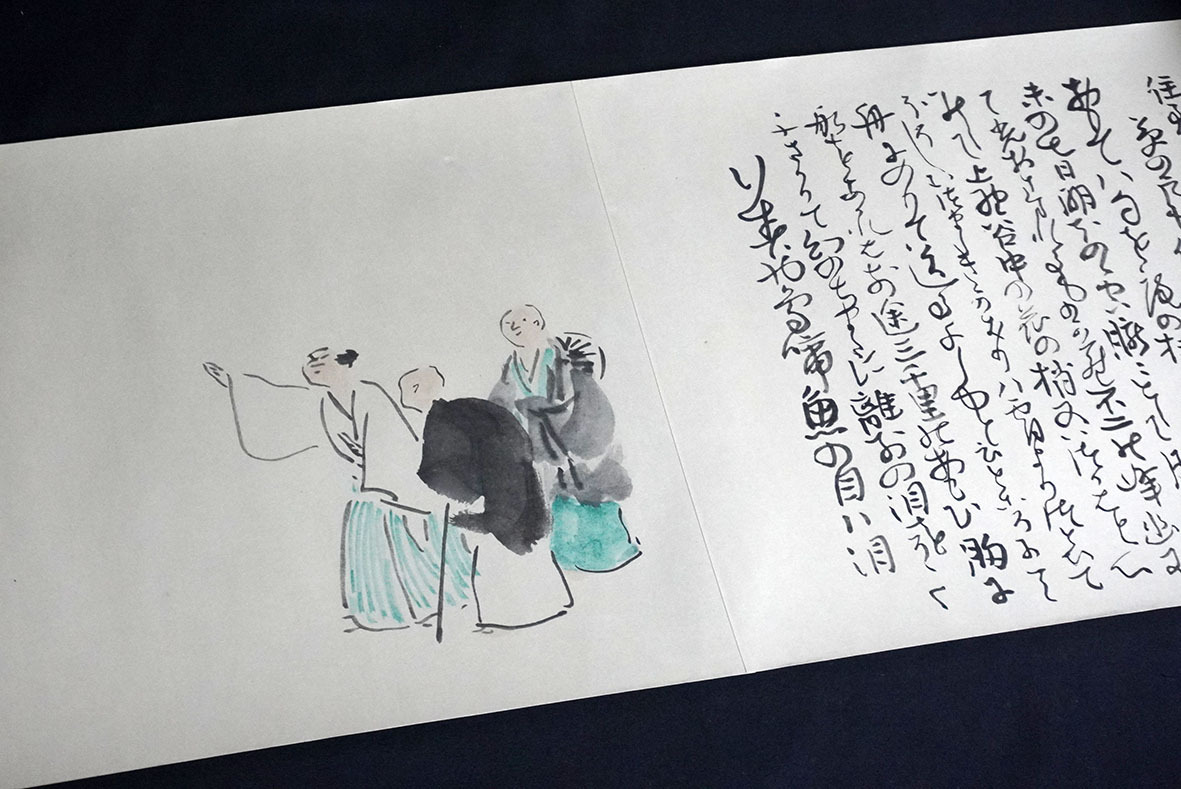 末の七日明ほのゝ空朧々として月
て光おさまれるものから不二の峰幽
みえて上野谷中の花の梢又いつかはと心
ほそしむつましきかきりは宵よりつとひて
舟にのりて送る千しゆといふところにて
船をあかれは前途三千里のおもひ胸に
ふさかりて幻のちまたに離別の泪をそゝく
行春や鳥啼魚の目ハ泪